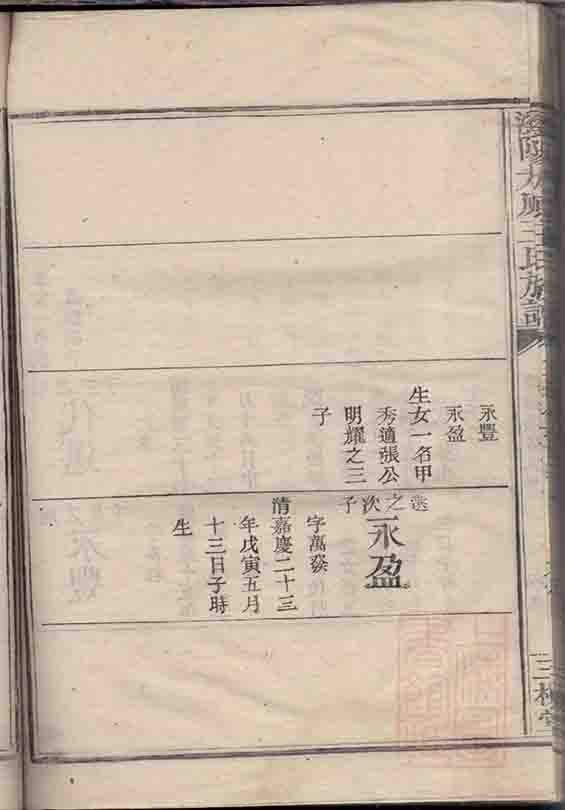 太原王氏族譜
永豐
永盈
生女一名甲
秀適張公
明耀之三
子
之次子
永盈
字萬
清嘉慶二十三
年戊寅五月
十三日子時
生
三槐堂